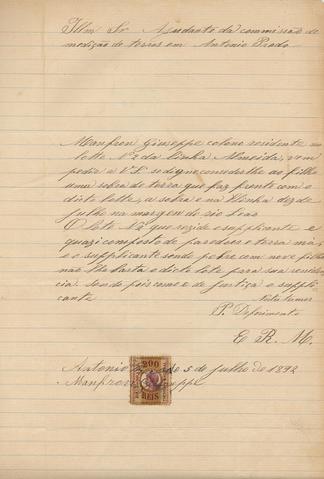 Illm Sr Ajudante da commissão de
medição de terras em Antonio Prado
Manfron Giuseppe colono residente no
lotte Nº 2 da linha Almeida, vem
pedir a V. Sª se digne conceder lhe ao filho
uma sobra de terra que faz frente com o
dicto lotte, a sobra e na linha dez de
Julho na margem do rio
O lote que rezide o supplicante e
quazi composto de paredoes e terra má,
e o supplicante sendo pobre com nove filhos
não lhe basta o dicto lote para sua residen
cia sendo pois como e de justiça o suppli
cante
P. Deferimento
E. R. M.
Antonio Prado 5 de Julho de 1892
Manfron Giuseppe
200
REIS